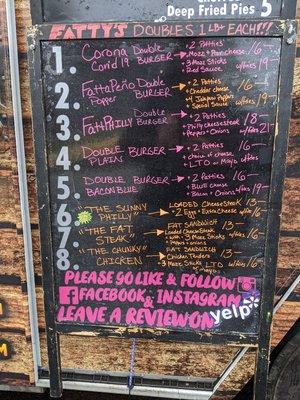 Deep Fried Pies 5
FATTY'S DOUBLES 1LB EACH!!!
1. Corona Double
Covid 19 BURGER
+ 2 Patties
Mozz + Parm cheese /16
+ 3 Mozz Sticks w/fries /19
Red Sauce
2. FattaPeño Double
Popper BURGER
+ 2 Patties
+ Cheddar cheese /16
+ 4 Jalapeno Poppers w/fries /19
+ Special Sauce
3. FattPhilly Double
BURGER
+ 2 Patties /18
+ Philly cheesesteak w/fries
+ Peppers + Onions /21
4. DOUBLE BURGER
PLAIN
+ 2 Patties /16
+ choice of cheese w/fries
LTO or Mayo /19
5. DOUBLE BURGER
BACON BLUE
+ 2 Patties /16
+ Blue Crumb w/fries
+ Bacon + Onions /19
6 "THE SUNNY
PHILLY"
LOADED Cheesesteak /13
+ 2 Egg + Extra Cheese w/fries /16
7 "THE FAT
STEAK"
FAT SANDWICH /13
Loaded Cheesesteak
with 3 Mozz Sticks w/fries /16
+ Peppers + onions
8 "THE CHUNKY"
CHICKEN
FAT SANDWICH /13
Chicken Tenders
3 Mozz Sticks LTO w/fries /16
mayo
PLEASE GO LIKE & FOLLOW
FACEBOOK & INSTAGRAM
&
LEAVE A REVIEW ON yelp